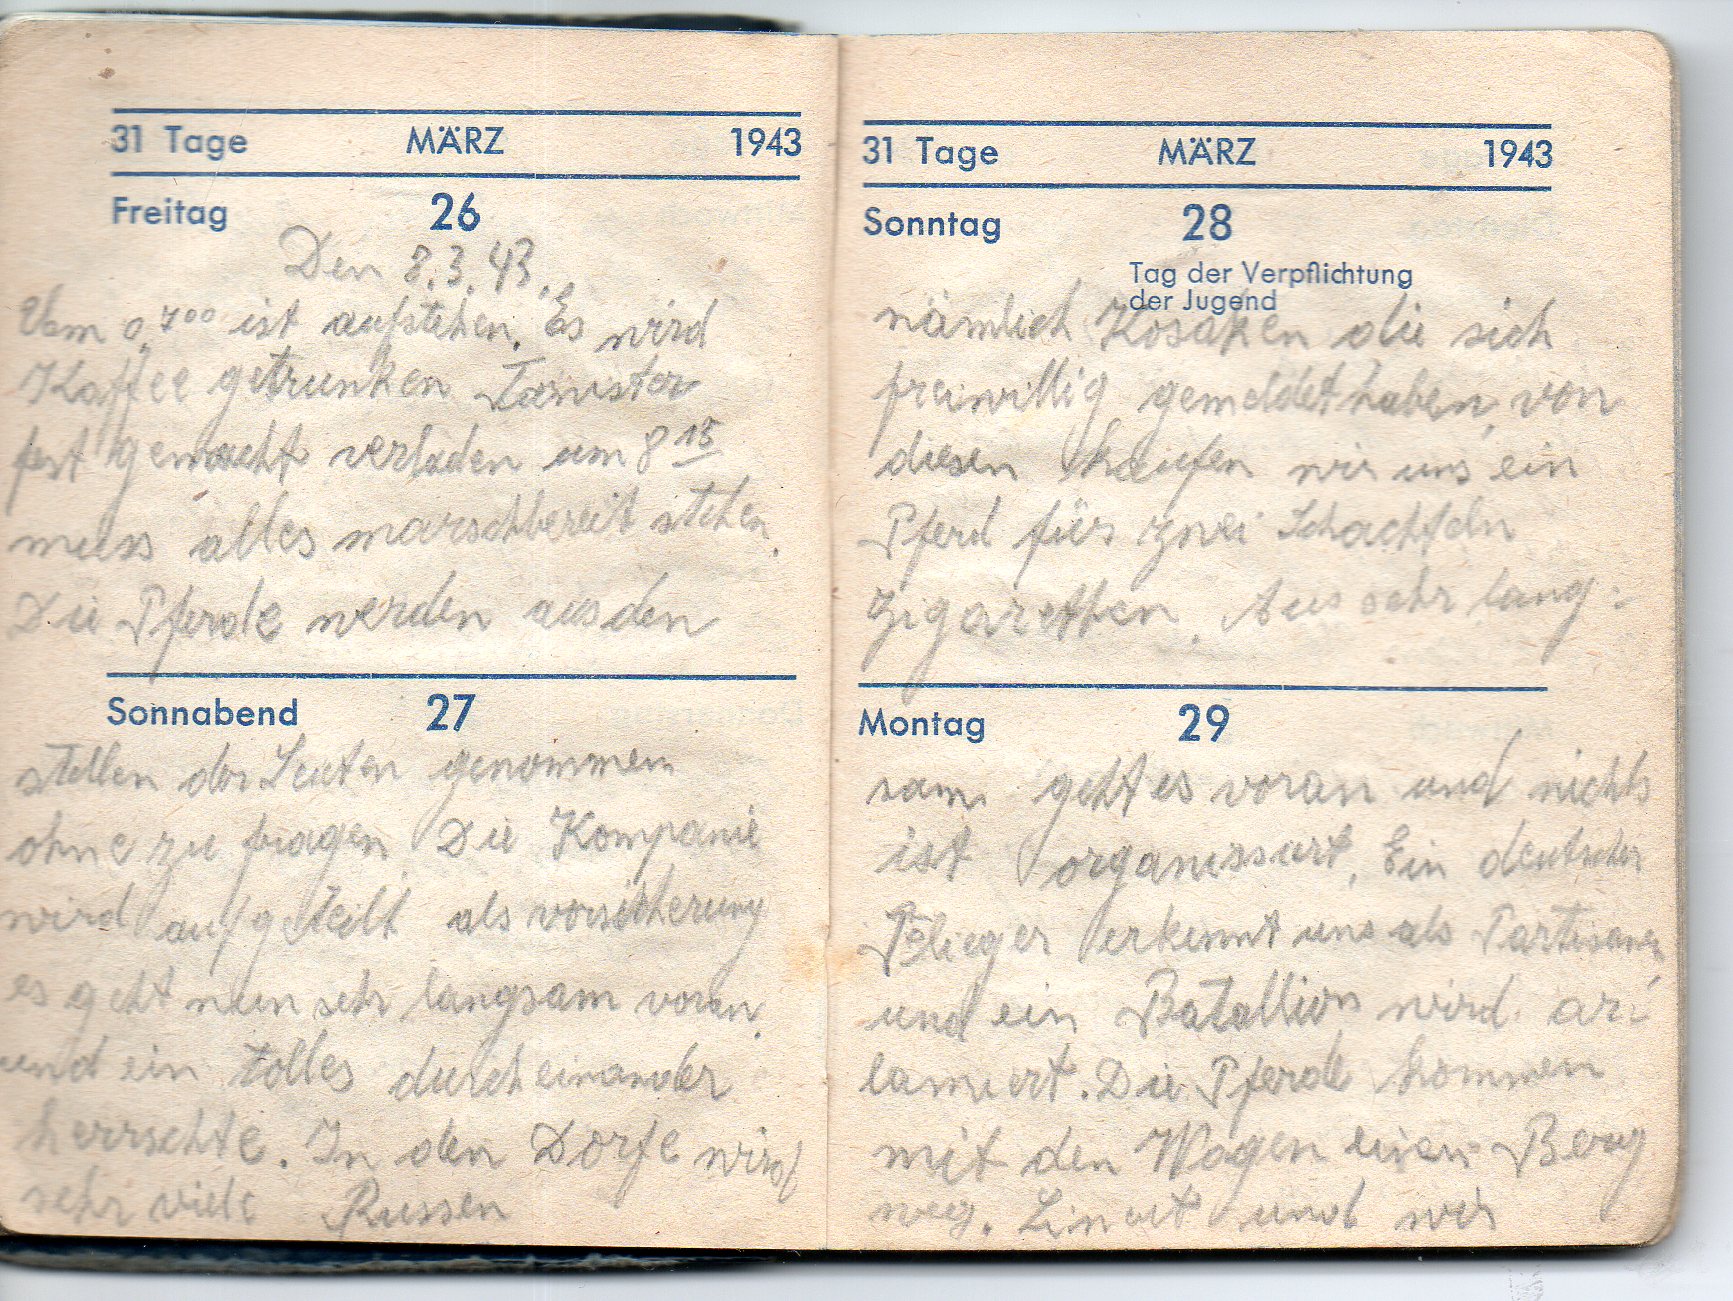 31 Tage MÄRZ 1943
Freitag 26
Den 8.3.43.
Um 0.4⁰⁰ ist aufstehen. Es wird
Kaffee getrunken Tornister
fest gemacht verladen um 8 15
muss alles marschbereit stehen.
Die Pferde werden aus den
Sonnabend 27
stellen der Leuten genommen
ohne zu fragen. Die Kompanie
wird aufgeteilt als vorsicherung
es geht nun sehr langsam voran.
und ein tolles durcheinander
herrschte. In den Dorfe wird
sehr viele Russen
31 Tage MÄRZ 1943
Sonntag 28
Tag der Verpflichtung
der Jugend
nämlich Kosaken die sich
freiwillig gemeldet haben, von
diesen kaufen wir uns ein
Pferd für zwei Schachteln
Zigaretten. sehr lang-
Montag 29
sam geht es voran und nichts
ist organissiert. Ein deutscher
Flieger erkennt uns als Partisanen
und ein Batallion wird ari
lamiert. Die Pferde kommen
mit den Wagen einen Berg
weg. und wir